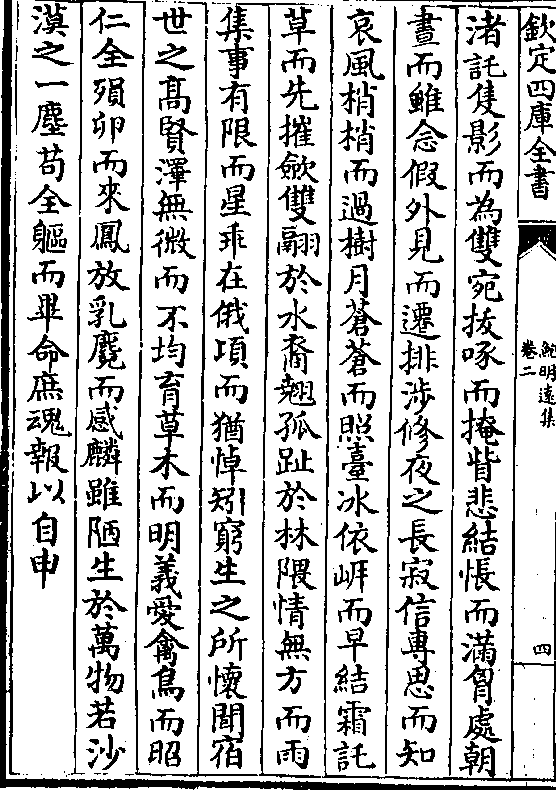 欽定四庫全書
鮑明遠集
卷二
四
渚託隻影而為雙宛拔啄而掩眥悲結悵而滿胷處朝
晝而雖念假外見而遷排涉修夜之長寂信專思而知
哀風梢梢而過樹月蒼蒼而照臺冰依岸而早結霜託
草而先摧斂雙翮於水裔翹孤趾於林隈情無方而雨
集事有限而星乖在俄頃而猶悼矧窮生之所懷聞宿
世之高賢澤無微而不均育草木而明義愛禽鳥而昭
仁全殞卵而來鳳放乳麑而感麟雖陋生於萬物若沙
漠之一塵苟全軀而畢命庶魂報以自申